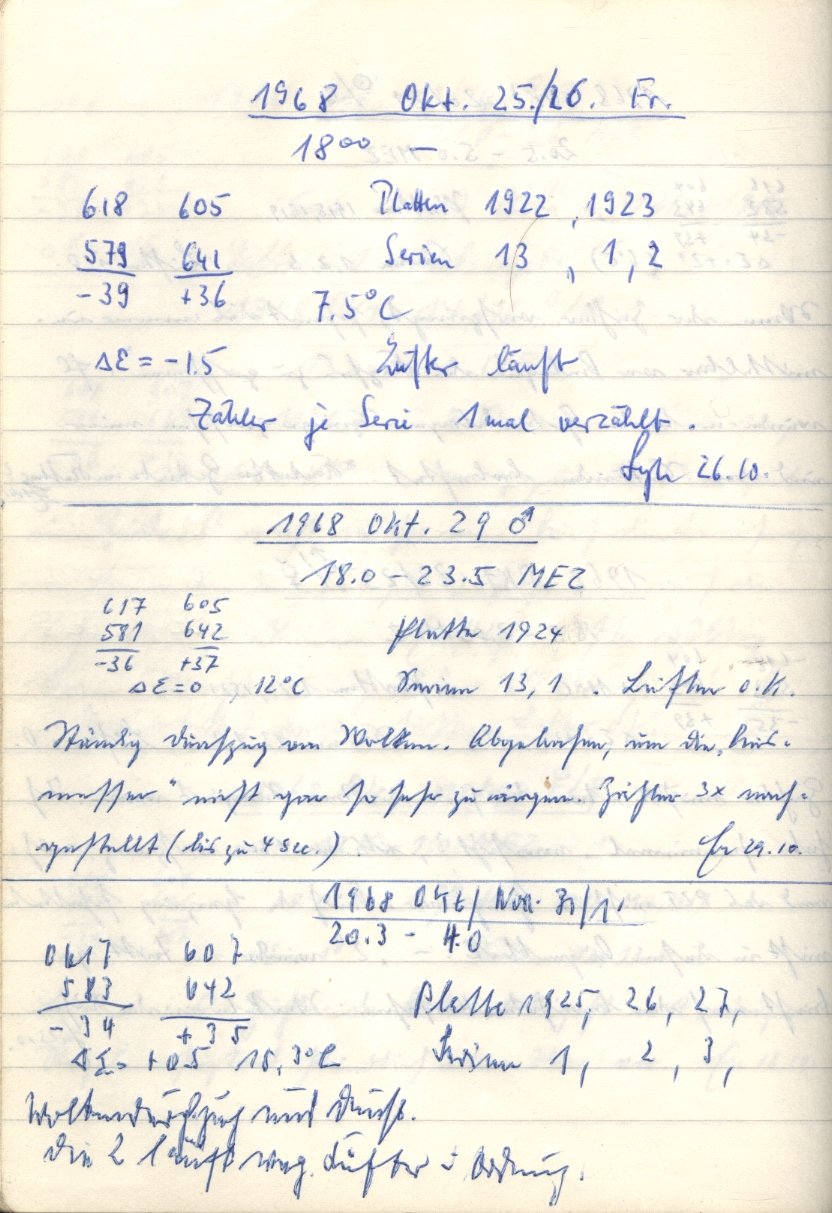 1968 Okt. 25./26. Fr.
18⁰⁰ —
618 605 Platten 1922, 1923
579 641 Serien 13, 1, 2
-39 +36 7.5°C
Δε = -1.5 Lüfter läuft
Zähler je Serie 1 mal verzählt.
26.10.
1968 Okt. 29 ♂
18.0 - 23.5 MEZ
617 605
581 642 Platte 1924
-36 +37
Δε=0 12°C Serien 13, 1. Lüfter o.K.
Ständig Durchzug von Wolken. Abgebrochen, um die
messer" nicht gar so sehr zu ärgern. Zähler 3x nach-
gestellt (bis zu 4 sec.). 29.10.
1968 Okt/Nov. 31/1.
20.3 - 4.0
0617 607
583 642 Platte 1925, 26, 27,
-34 +35
Δε= +0.5 15.3°C Serien 1, 2, 3,
Wolkendurchzug und Dunst.
Die 2 läuft weg. Lüfter i Ordnung.